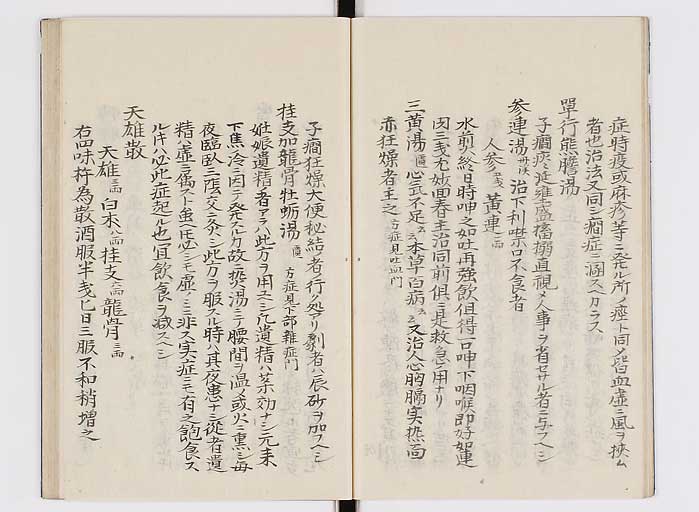 症時疫或麻疹等ニ発ル所ノ痓ト同メ皆血虚ニ風ヲ挾ム
者也治法又同シ癇症ニ混スヘカラス
單行熊膽湯
子癇痰延壅盛搐搦直視メ人事ヲ省セサル者ニ与フヘシ
参連湯 治下利噤口不食者
人参 黄連
水煎終日時呷之如吐再強飲但得一口呷下咽喉即好如連
因三 妙面春主治同前俱ニ是救急ノ用ナリ
三黄湯 心氣不足 本草白病 又治人心胸膈实热面
赤狂燥者主之 方症見吐血門
子癇狂燥大便秘結ノ者ニ行ノ処ナリ劇者ハ辰砂ヲ加フヘシ
桂支加龍骨牡蛎湯 方症見下部雜症門
妊娠遺精者アラハ此方ヲ用ユヘシ凡遺精ハ茶効ナシ元来
下焦冷ニ因テ発スル力故煎湯ニテ腰間ヲ温メ或火ニ熏シ毎
夜臨臥三陰交ニ灸シ此方ヲ服スル時ハ其夜患ナシ従者遺
精ハ虚ニ属スト虽𪜈必シモ虚ニ非ス又实症ニモ有之飽食ス
ル𪜈ハ必此症起ル也宜飲食ヲ减スヘシ
天雄散
天雄 三両 白朮 八両 桂支 六両 龍骨 三両
右四味杵為散酒服半戔匕日三服不和稍増之